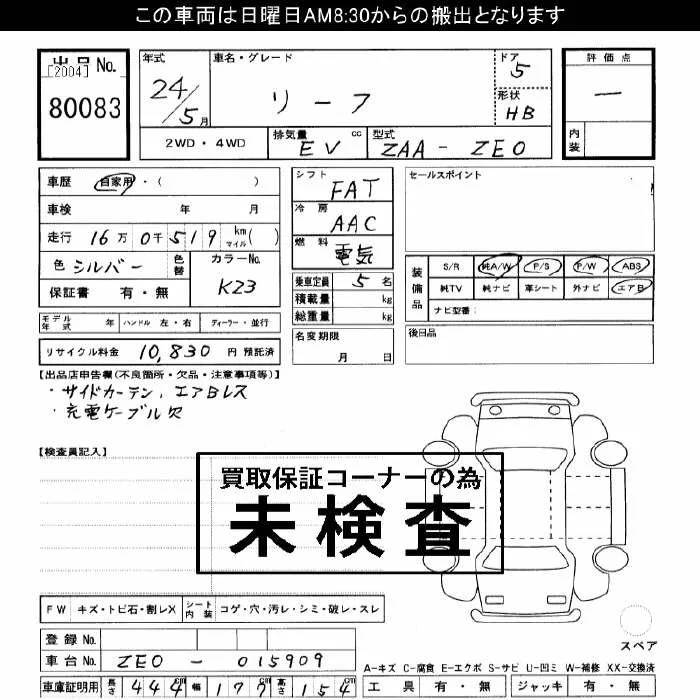 この車両は日曜日AM8:30からの搬出となります
出品No.
[2004]
80083
年式
24/5月
車名・グレード
リーフ
ドア
5
形状
HB
評価点
ー
内装
2WD・4WD
排気量
cc
EV
型式
ZAA-ZE0
車歴 自家用・( )
車検 年 月
走行 16万0千519km(マイル)
色 シルバー
色替
カラーNo.
K23
保証書 有・無
モデル年式 年 ハンドル 左・右 ディーラー・並行
リサイクル料金 10,830 円 預託済
シフト
FAT
冷房
AAC
燃料
電気
乗車定員 5名
積載量 kg
総重量 kg
名変期限
月 日
セールスポイント
装備品
S/R 純A/W P/S P/W ABS
純TV 純ナビ 革シート 外ナビ エアB
ナビ型番:
後日品
【出品店申告欄(不良箇所・欠品・注意事項等)】
・サイドカーテン、エアBレス
・充電ケーブル欠
【検査員記入】
買取保証コーナーの為
未検査
FW キズ・トビ石・割レX シート内装 コゲ・穴・汚レ・シミ・破レ・スレ
スペア
登録No.
車台No. ZE0-015909
車庫証明用 長さ 444cm 幅 177cm 高さ 154cm
A-キズ C-腐食 E-エクボ S-サビ U-凹ミ W-補修 XX-交換済
工具 有・無 ジャッキ 有・無